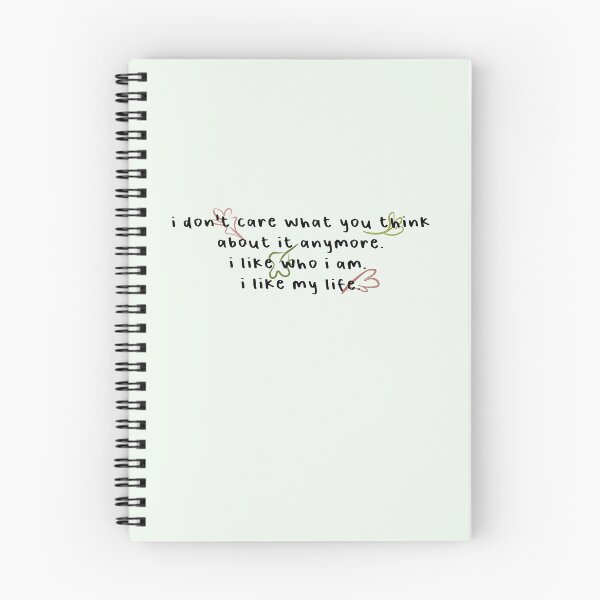 i don't care what you think
about it anymore.
i like who i am.
i like my life.